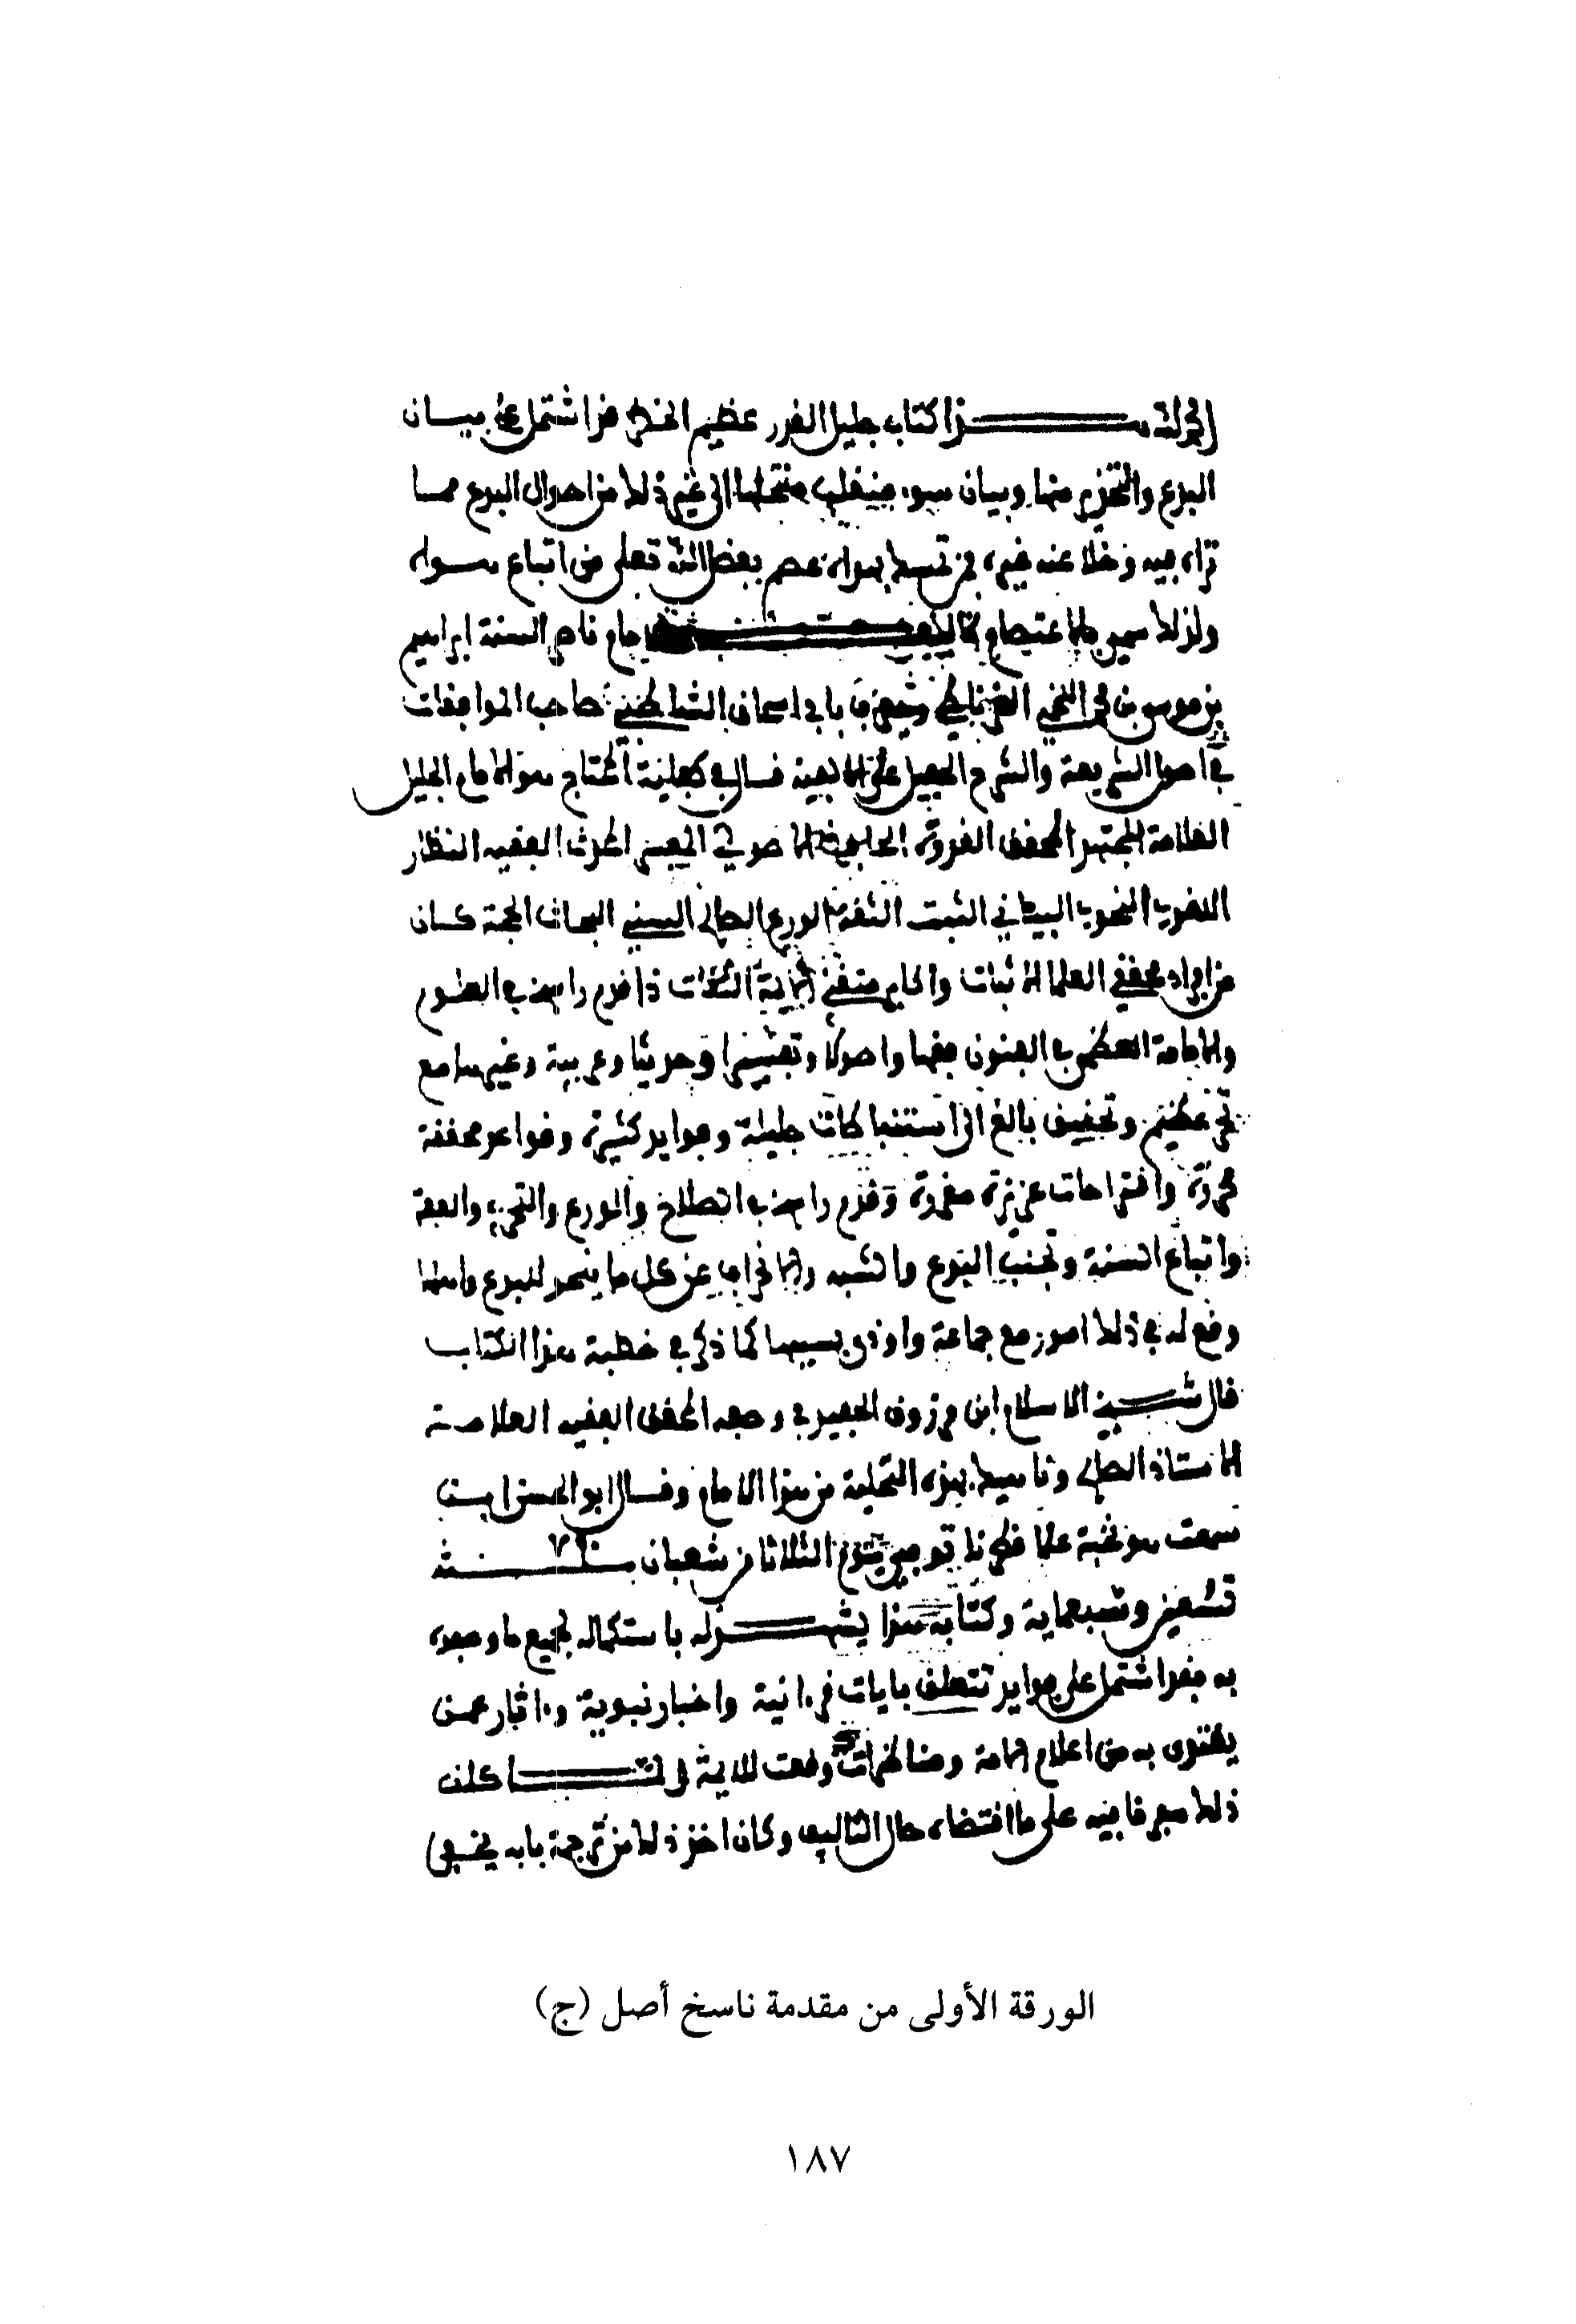 الحمد لله هذا كتاب جليل القدر عظيم الخطر قد اشتمل على بيان
البدع والتحذير منها وبيان سوء منقلب منتحلها الى غير ذلك من احوال البدع مما
تراه فيه وخلا عنه غيره فمن تمسك بهداه عصم بفضل الله تعلى من اتباع سواه
ولذلك سمي بالاعتصام تاليف الامام ناصر السنة ابراهيم
بن موسى بن محمد اللخمي الغرناطي ويعرف بابي اسحاق الشاطبي صاحب الموافقات
في اصول الشريعة والشرح الجليل على الالفية قال في كفاية المحتاج هو الامام الجليل
العلامة المجتهد المحقق القدوة الحافظ الاصولي المفسر المحدث الفقيه النظار
اللغوي النحوي البياني الثبت الثقة الورع الصالح السني البحاث الحجة كان
من افراد محققي العلما الاثبات واكابر متفنني الايمة الثقات ذا قدم راسخ في العلوم
والامامة العظمى في الفنون فقها واصولا وتفسيرا وحديثا وعربية وغيرها مع
تحر عظيم وتحقيق بالغ الى استنباطات جليلة وفوايد كثيرة وقواعد محققة
محررة واقتراحات عزيزة مقررة وقدم راسخ في الصلاح والورع والتحري والعفة
واتباع السنة وتجنب البدع والشبه والانحراف عن كل ما ينحو للبدع واهلها
وقع له في ذلك امور مع جماعة واوذي بسببها كما ذكر في خطبة هذا الكتاب
قال شيخ الاسلام ابن مرزوق الحفيد في وصفه المحقق الفقيه العلامة
الاستاذ الصالح وناهيك بهذه التحلية من هذا الامام وقال ابو الحسن ابن
سمعت هو نخبة علما قطرنا توفي يوم الثلاثا من شعبان سنة ٧٩٠
تسعين وسبعماية وكتابه هذا يشهد له باستكماله لجميع ما وصفوه
به فقد اشتمل على فوايد تتعلق بايات قرءانية واخبار نبوية وءاثار عمن
يقتدى به من اعلام الامة ومناظرات وقعت للايمة في
ذلك مبرقا فيه على ما اقتضاه حال التاليف وكان اخذ ذلك من ترجمة بابه يخفى
الورقة الأولى من مقدمة ناسخ أصل (ج)
١٨٧